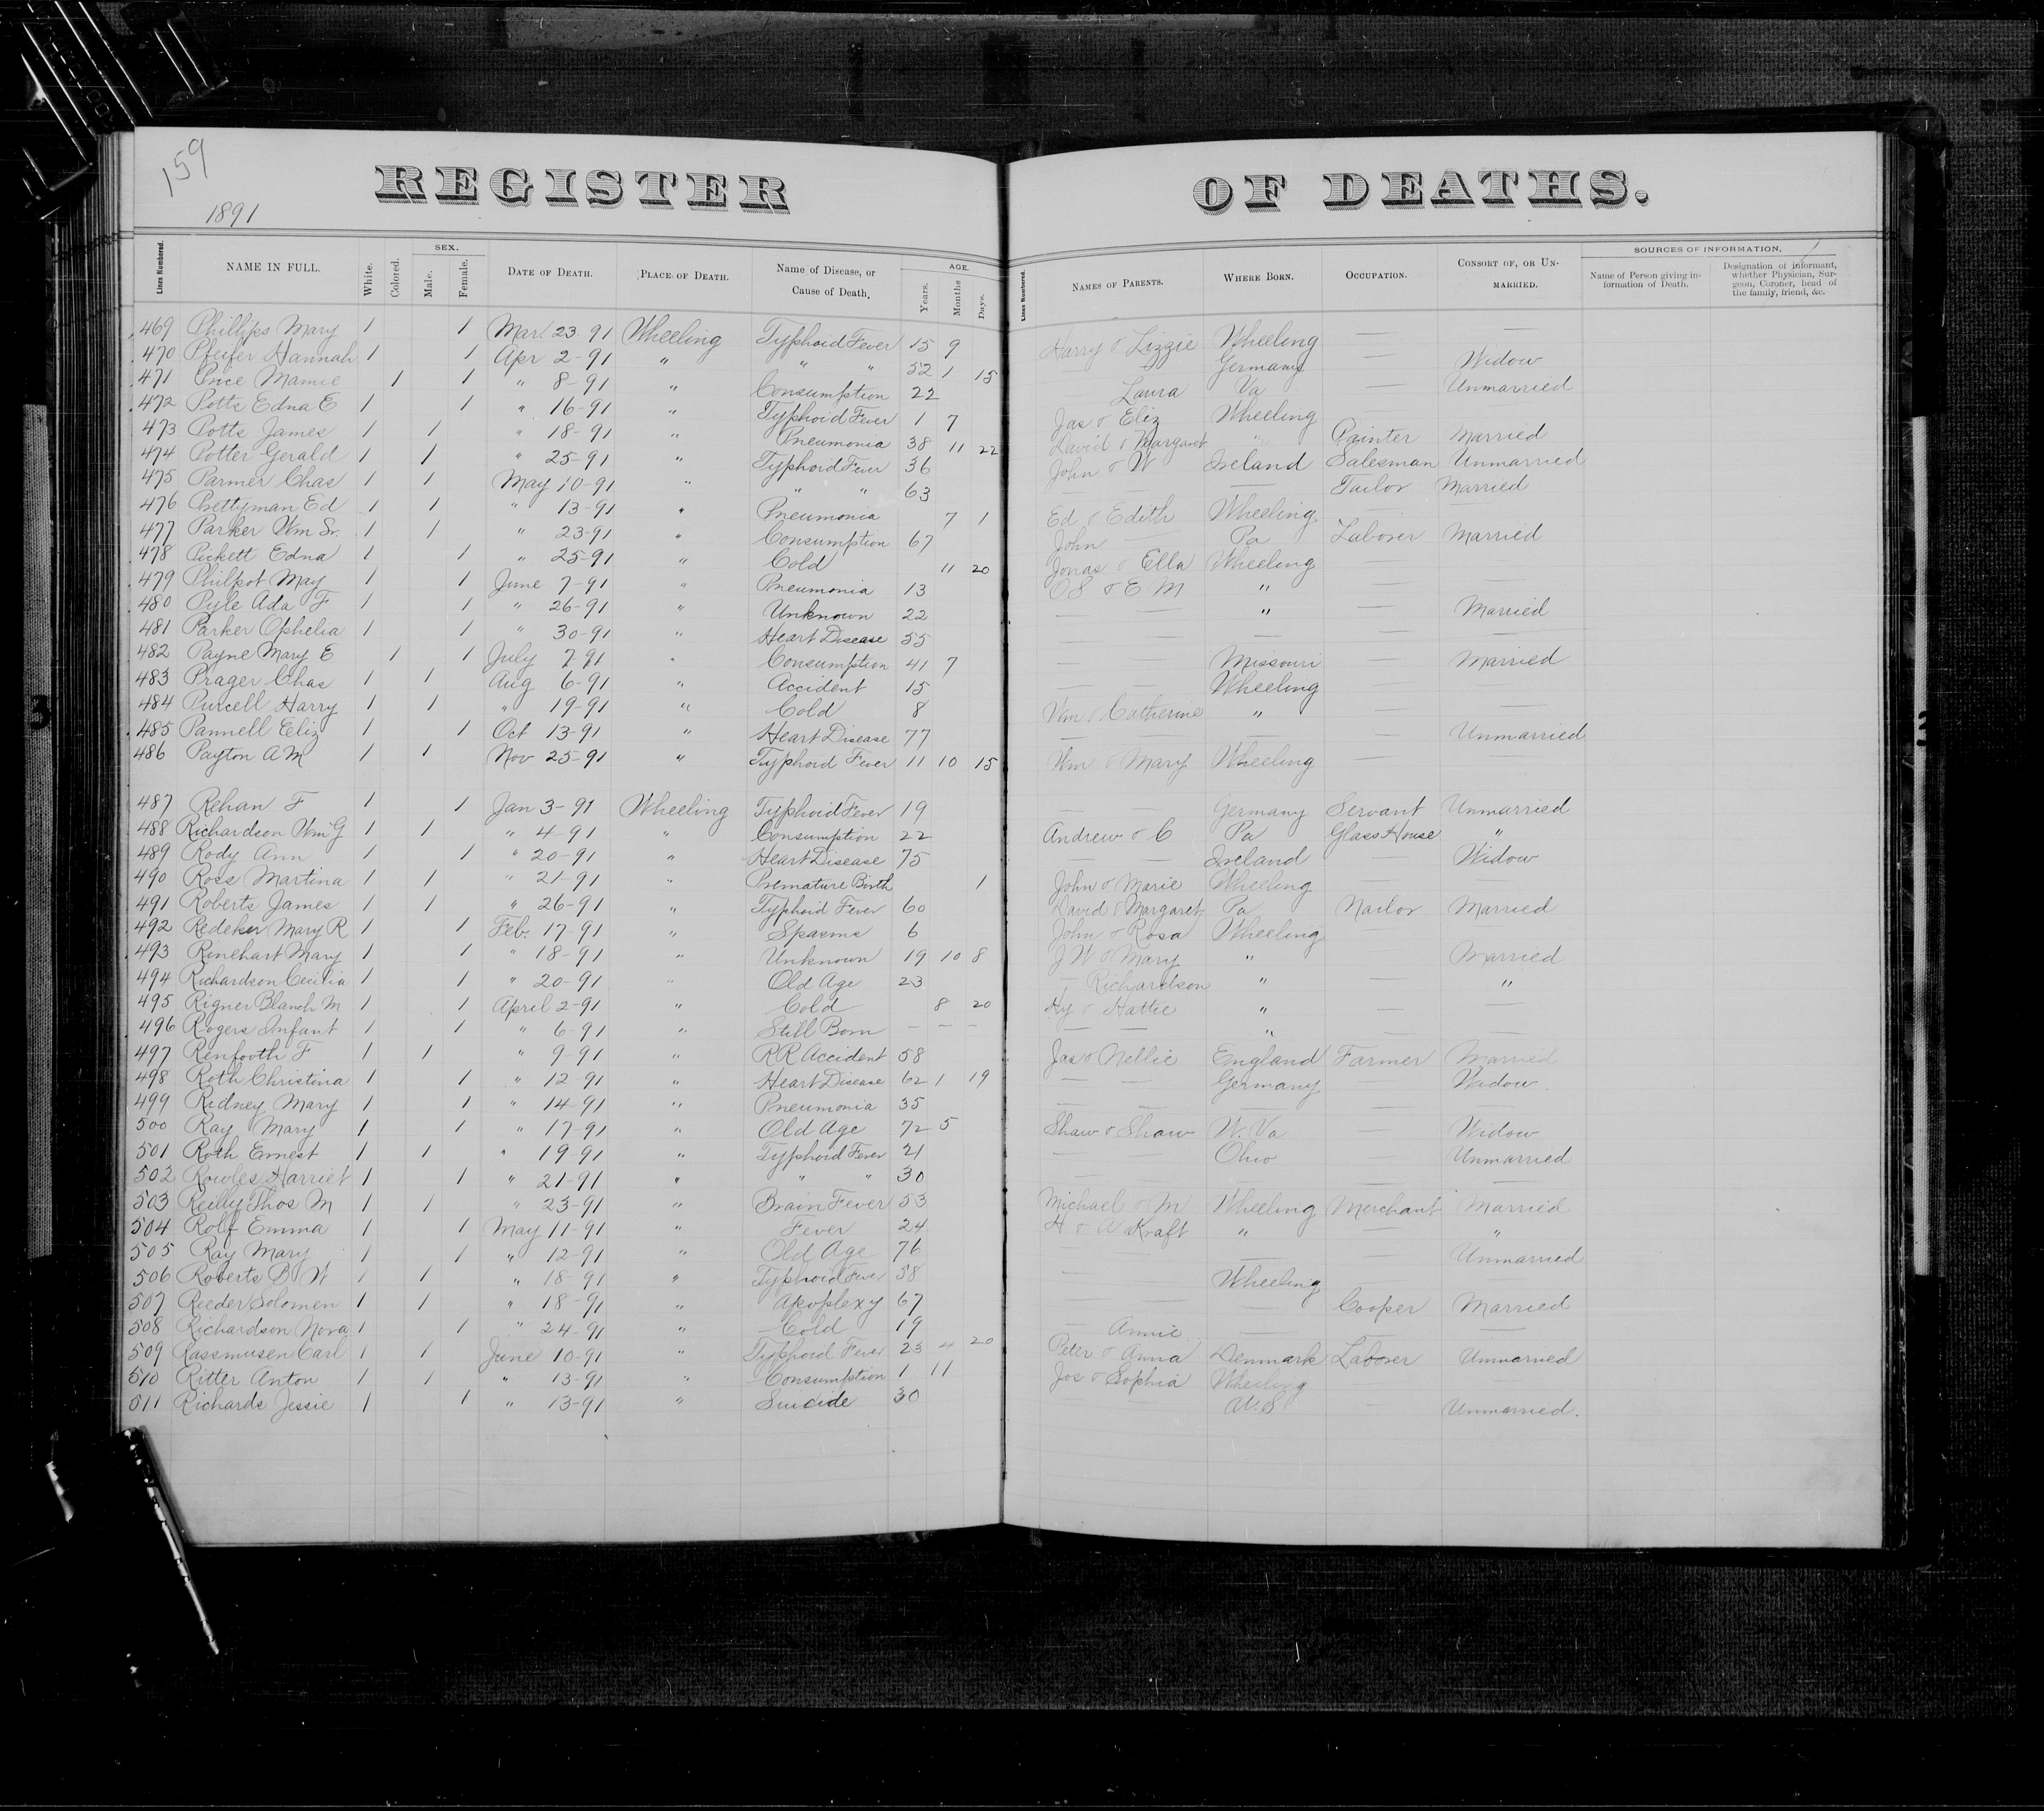 159
REGISTER OF DEATHS.
1891
Lines Numbered. NAME IN FULL. White. Colored. SEX. Male. Female. DATE OF DEATH. PLACE OF DEATH. Name of Disease, or Cause of Death. AGE. Years. Months Days. Lines Numbered. NAMES OF PARENTS. WHERE BORN. OCCUPATION. CONSORT OF, OR UNMARRIED. SOURCES OF INFORMATION. Name of Person giving information of Death. Designation of informant, whether Physician, Surgeon, Coroner, head of the family, friend, &c.
469 Phillips Mary 1 1 Mar. 23-91 Wheeling Typhoid Fever 15 9 Harry & Lizzie Wheeling — —
470 Pfeifer Hannah 1 1 Apr 2-91 " " " 52 1 15 Germany — Widow
471 Price Mamie 1 1 " 8-91 " Consumption 22 Laura Va — Unmarried
472 Potts Edna E 1 1 " 16-91 " Typhoid Fever 1 7 Jas & Eliz Wheeling —
473 Potts James 1 1 " 18-91 " Pneumonia 38 11 22 David & Margaret " Painter Married
474 Potter Gerald 1 1 " 25-91 " Typhoid Fever 36 John & W Ireland Salesman Unmarried
475 Parmer Chas 1 1 May 10-91 " " " 63 — — — Tailor Married
476 Prettyman Ed 1 1 " 13-91 " Pneumonia 7 1 Ed & Edith Wheeling — —
477 Parker Wm Sr. 1 1 " 23-91 " Consumption 67 John — Pa Laborer Married
478 Pickett Edna 1 1 " 25-91 " Cold 11 20 Jonas & Ella Wheeling — —
479 Philpot May 1 1 June 7-91 " Pneumonia 13 O S & E M " — —
480 Pyle Ada F 1 1 " 26-91 " Unknown 22 — — " — Married
481 Parker Ophelia 1 1 " 30-91 " Heart Disease 55 — — — — —
482 Payne Mary E 1 1 July 7-91 " Consumption 41 7 — — Missouri — Married
483 Prager Chas 1 1 Aug 6-91 " Accident 15 — — Wheeling — —
484 Purcell Harry 1 1 " 19-91 " Cold 8 Wm & Catherine " — —
485 Pannell Eliz 1 1 Oct 13-91 " Heart Disease 77 — — — — Unmarried
486 Payton A M 1 1 Nov 25-91 " Typhoid Fever 11 10 15 Wm & Mary Wheeling — —
487 Rehan F 1 1 Jan 3-91 Wheeling Typhoid Fever 19 — — Germany Servant Unmarried
488 Richardson Wm G 1 1 " 4-91 " Consumption 22 Andrew & C Pa Glass House "
489 Rody Ann 1 1 " 20-91 " Heart Disease 75 — — Ireland — Widow
490 Ross Martina 1 1 " 21-91 " Premature Birth 1 John & Marie Wheeling — —
491 Roberts James 1 1 " 26-91 " Typhoid Fever 60 David & Margaret Pa Nailor Married
492 Redeker Mary R 1 1 Feb. 17-91 " Spasms 6 John & Rosa Wheeling — —
493 Rinehart Mary 1 1 " 18-91 " Unknown 19 10 8 J W & Mary " Married
494 Richardson Cecilia 1 1 " 20-91 " Old Age 23 — Richardson " — "
495 Rigner Blanch M 1 1 April 2-91 " Cold 8 20 Hy & Hattie " — —
496 Rogers Infant 1 1 " 6-91 " Still Born — — — — — " — —
497 Renfooth F 1 1 " 9-91 " RR Accident 58 Jas & Nellie England Farmer Married
498 Roth Christina 1 1 " 12-91 " Heart Disease 62 1 19 — — Germany — Widow.
499 Ridney Mary 1 1 " 14-91 " Pneumonia 35 — — — — —
500 Ray Mary 1 1 " 17-91 " Old Age 72 5 Shaw & Shaw W. Va — Widow
501 Roth Ernest 1 1 " 19 91 " Typhoid Fever 21 — — Ohio — Unmarried
502 Rowles Harriet 1 1 " 21-91 " " " 30 — — — — —
503 Reilly Thos M 1 1 " 23-91 " Brain Fever 53 Michael & M Wheeling Merchant Married
504 Rolf Emma 1 1 May 11-91 " Fever 24 H & A Kraft " — "
505 Ray Mary 1 1 " 12-91 " Old Age 76 — — — — Unmarried
506 Roberts B W 1 1 " 18-91 " Typhoid Fever 58 — — Wheeling — —
507 Reeder Solomen 1 1 " 18-91 " Apoplexy 67 — — — Cooper Married
508 Richardson Nora 1 1 " 24-91 " Cold 19 — Annie — — —
509 Rassmusen Carl 1 1 June 10-91 " Typhoid Fever 23 4 20 Peter & Anna Denmark Laborer Unmarried
510 Ritter Anton 1 1 " 13-91 " Consumption 1 11 Jos & Sophia Wheeling
511 Richards Jessie 1 1 " 13-91 " Suicide 30 — — U.S — Unmarried.